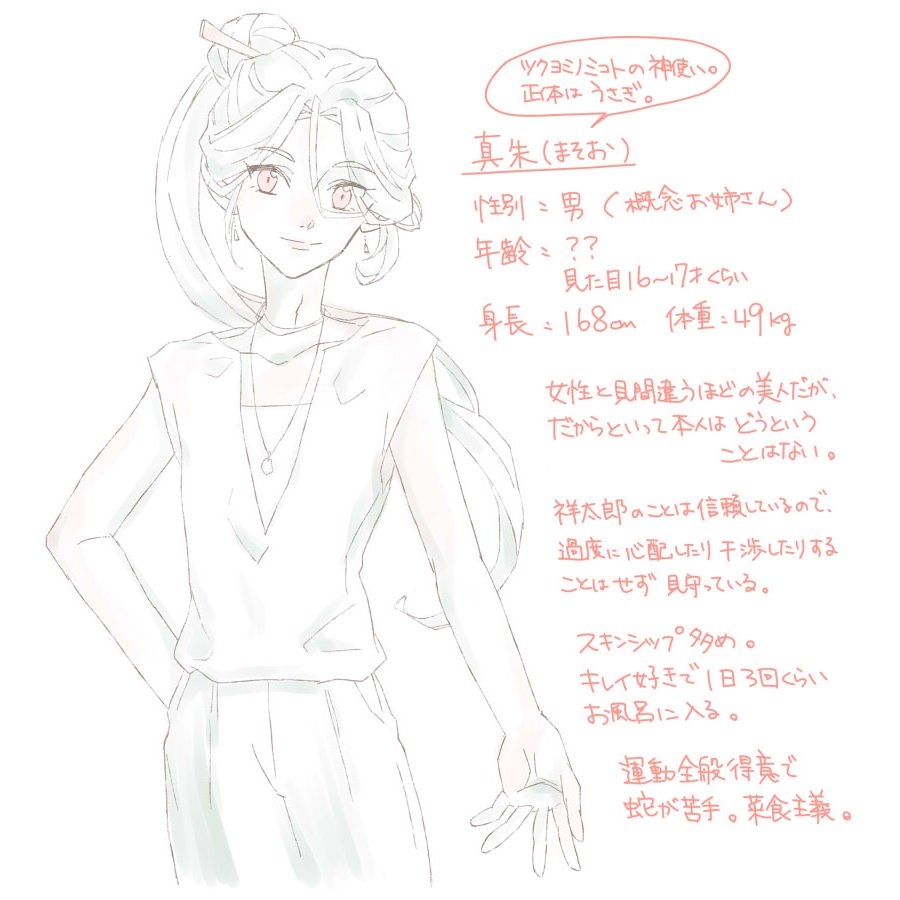 ツクヨミノミコトの神使い。
正体はうさぎ。
真朱(まそお)
性別:男(概念お姉さん)
年齢:??
見た目16〜17才くらい
身長:168cm 体重:49kg
女性と見間違うほどの美人だが、
だからといって本人はどうという
ことはない。
祥太郎のことは信頼しているので、
過度に心配したり干渉したりする
ことはせず見守っている。
スキンシップ多め。
キレイ好きで1日3回くらい
お風呂に入る。
運動全般得意で
蛇が苦手。菜食主義。